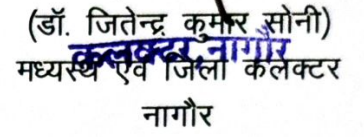 (डॉ. जितेन्द्र कुमार सोनी)
कलक्टर, नागौर
मध्यस्थ एवं जिला कलेक्टर
नागौर